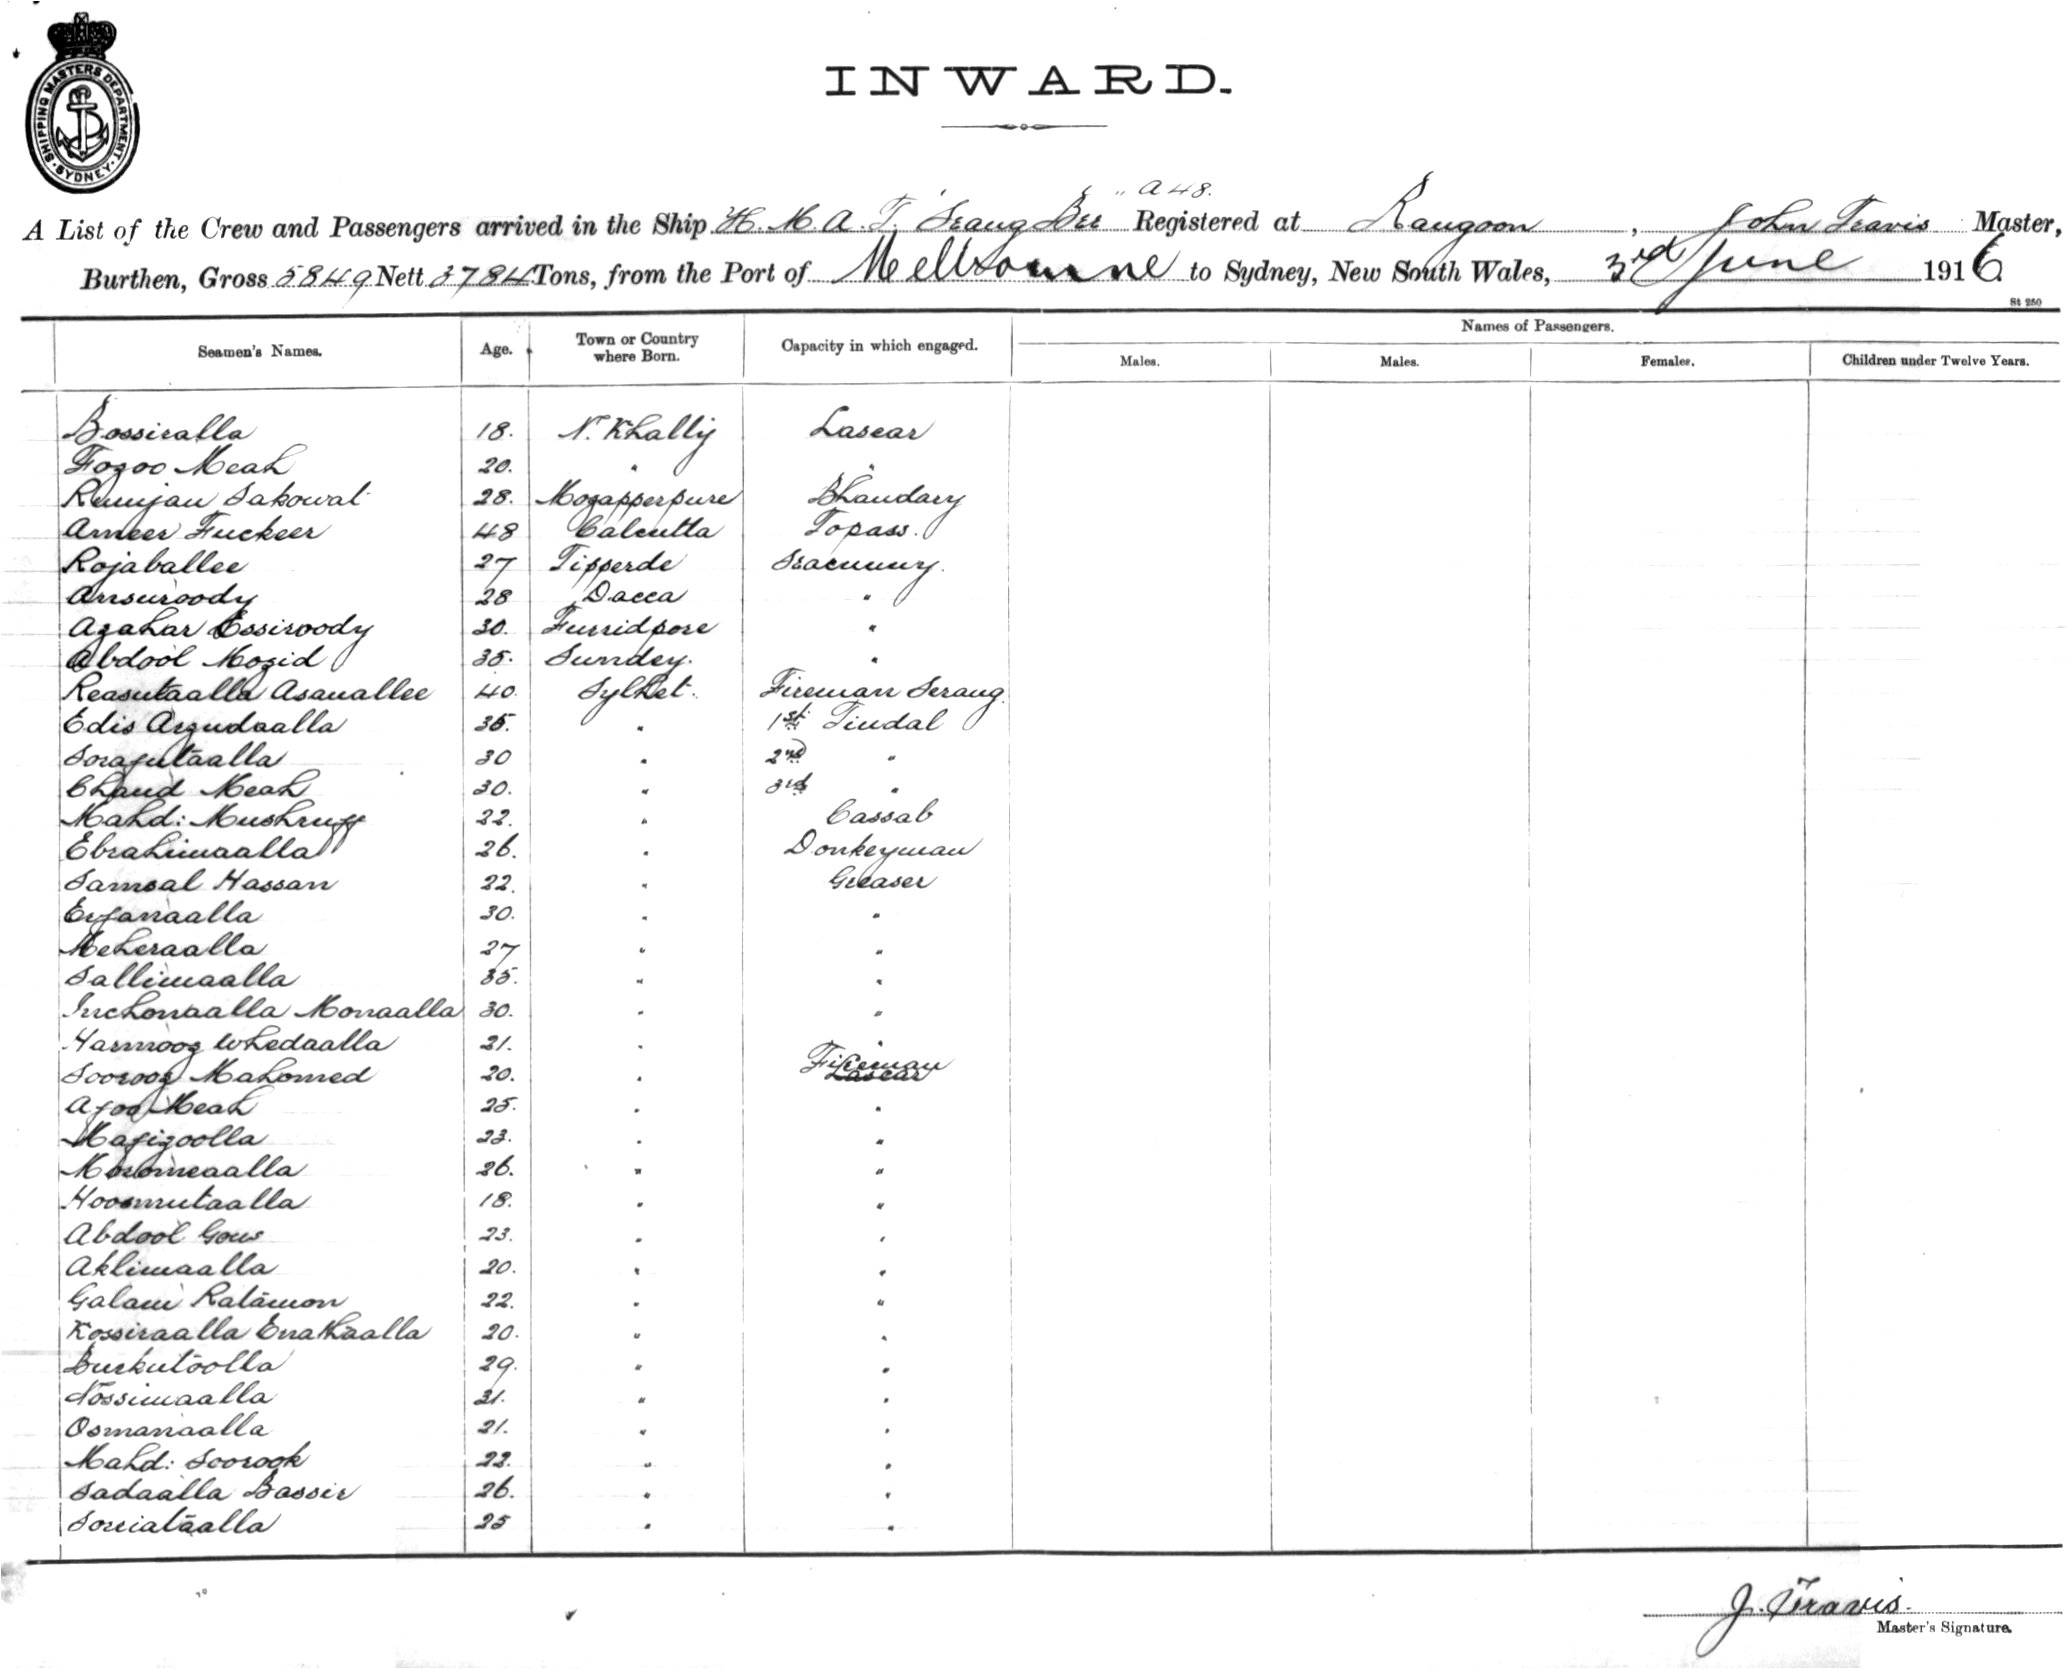 SHIPPING MASTERS DEPARTMENT. SYDNEY.
INWARD.
"A 48.
A List of the Crew and Passengers arrived in the Ship H.M.A.T. "Seang Bee" Registered at Rangoon, John Travis Master,
Burthen, Gross 5849 Nett 3784 Tons, from the Port of Melbourne to Sydney, New South Wales, 3rd June 1916
St 250
Seamen's Names. Age. Town or Country where Born. Capacity in which engaged. Names of Passengers.
Males. Males. Females. Children under Twelve Years.
Bossiralla 18. N. Khally Lascar
Fozoo Meah 20. " "
Rumjan Sakowat 28. Mozapperpure Bhandary
Ameer Fuckeer 48 Calcutta Topass.
Rojaballee 27 Tipperde Seacunny.
Ansuroody 28 Dacca "
Azahar Essiroody 30. Furridpore "
Abdool Mozid 35. Sundey. "
Reasutaalla Asanallee 40. Sylhet. Fireman Serang.
Edis Arzudaalla 35. " 1st Tindal
Sorafutaalla 30 " 2nd "
Chand Meah 30. " 3rd "
Mahd: Mushruff 22. " Cassab
Ebrahimaalla 26. " Donkeyman
Samsal Hassan 22. " Greaser
Erfanaalla 30. " "
Meheraalla 27 " "
Sallimaalla 35. " "
Inchonaalla Monaalla 30. " "
Harmooz Whedaalla 21. " "
Sooroog Mahomed 20. " Fireman Lascar
Afoo Meah 25. " "
Mafizoolla 23. " "
Moromeaalla 26. " "
Hoosmutaalla 18. " "
Abdool Gous 23. " "
Aklimaalla 20. " "
Galam Ratamon 22. " "
Kossiraalla Enathaalla 20. " "
Burkutoolla 29. " "
Nossimaalla 21. " "
Osmanaalla 21. " "
Mahd: Soorook 22. " "
Sadaalla Bassir 26. " "
Sorriataalla 25 " "
J. Travis.
Master's Signature.